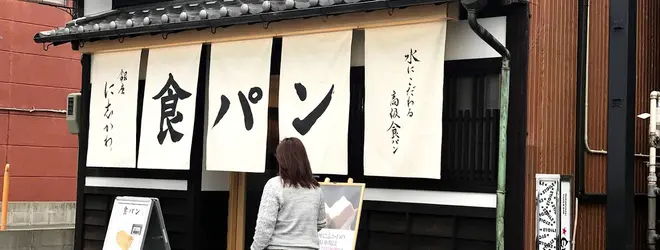 銀座
に志かわ
食パン
水にこだわる
高級食パン
食パン